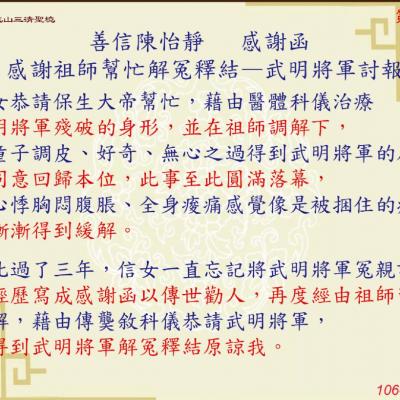 山三清聖境
善信陳怡靜 感謝函
感謝祖師幫忙解冤釋結—武明將軍討報
女恭請保生大帝幫忙，藉由醫體科儀治療
明將軍殘破的身形，並在祖師調解下，
童子調皮、好奇、無心之過得到武明將軍的
同意回歸本位，此事至此圓滿落幕，
心悸胸悶腹脹、全身痠痛感覺像是被捆住的
漸漸得到緩解。
此過了三年，信女一直忘記將武明將軍冤親
經歷寫成感謝函以傳世勸人，再度經由祖師
解，藉由傳襲敘科儀恭請武明將軍，
得到武明將軍解冤釋結原諒我。
106